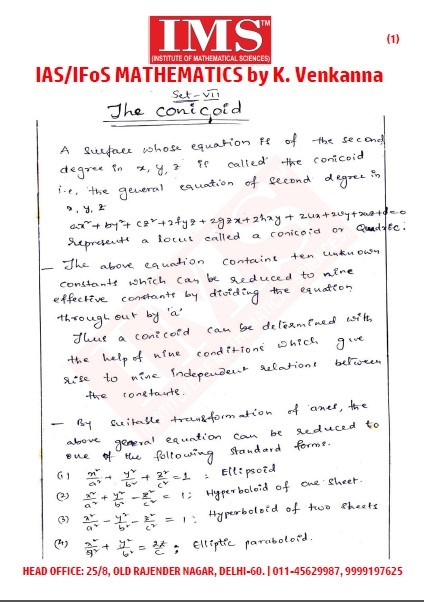 IMS™
(INSTITUTE OF MATHEMATICAL SCIENCES)
(1)
IAS/IFoS MATHEMATICS by K. Venkanna
Set-VII
The conicoid
A surface whose equation is of the second
degree in x, y, z is called the conicoid
i.e., the general equation of second degree in
x, y, z
ax²+by²+cz²+2fyz+2gzx+2hxy+2ux+2vy+2wz+d=0
represents a locus called a conicoid or Quadric.
— The above equation contains ten unknown
constants which can be reduced to nine
effective constants by dividing the equation
through out by 'a'
Thus a conicoid can be determined with
the help of nine conditions which give
rise to nine independent relations between
the constants.
— By suitable transformation of axes, the
above general equation can be reduced to
one of the following standard forms.
(1) x²/a² + y²/b² + z²/c² = 1 : Ellipsoid
(2) x²/a² + y²/b² - z²/c² = 1; Hyperboloid of one sheet.
(3) x²/a² - y²/b² - z²/c² = 1: Hyperboloid of two sheets
(4) x²/a² + y²/b² = 2z/c; Elliptic paraboloid.
HEAD OFFICE: 25/8, OLD RAJENDER NAGAR, DELHI-60. | 011-45629987, 9999197625